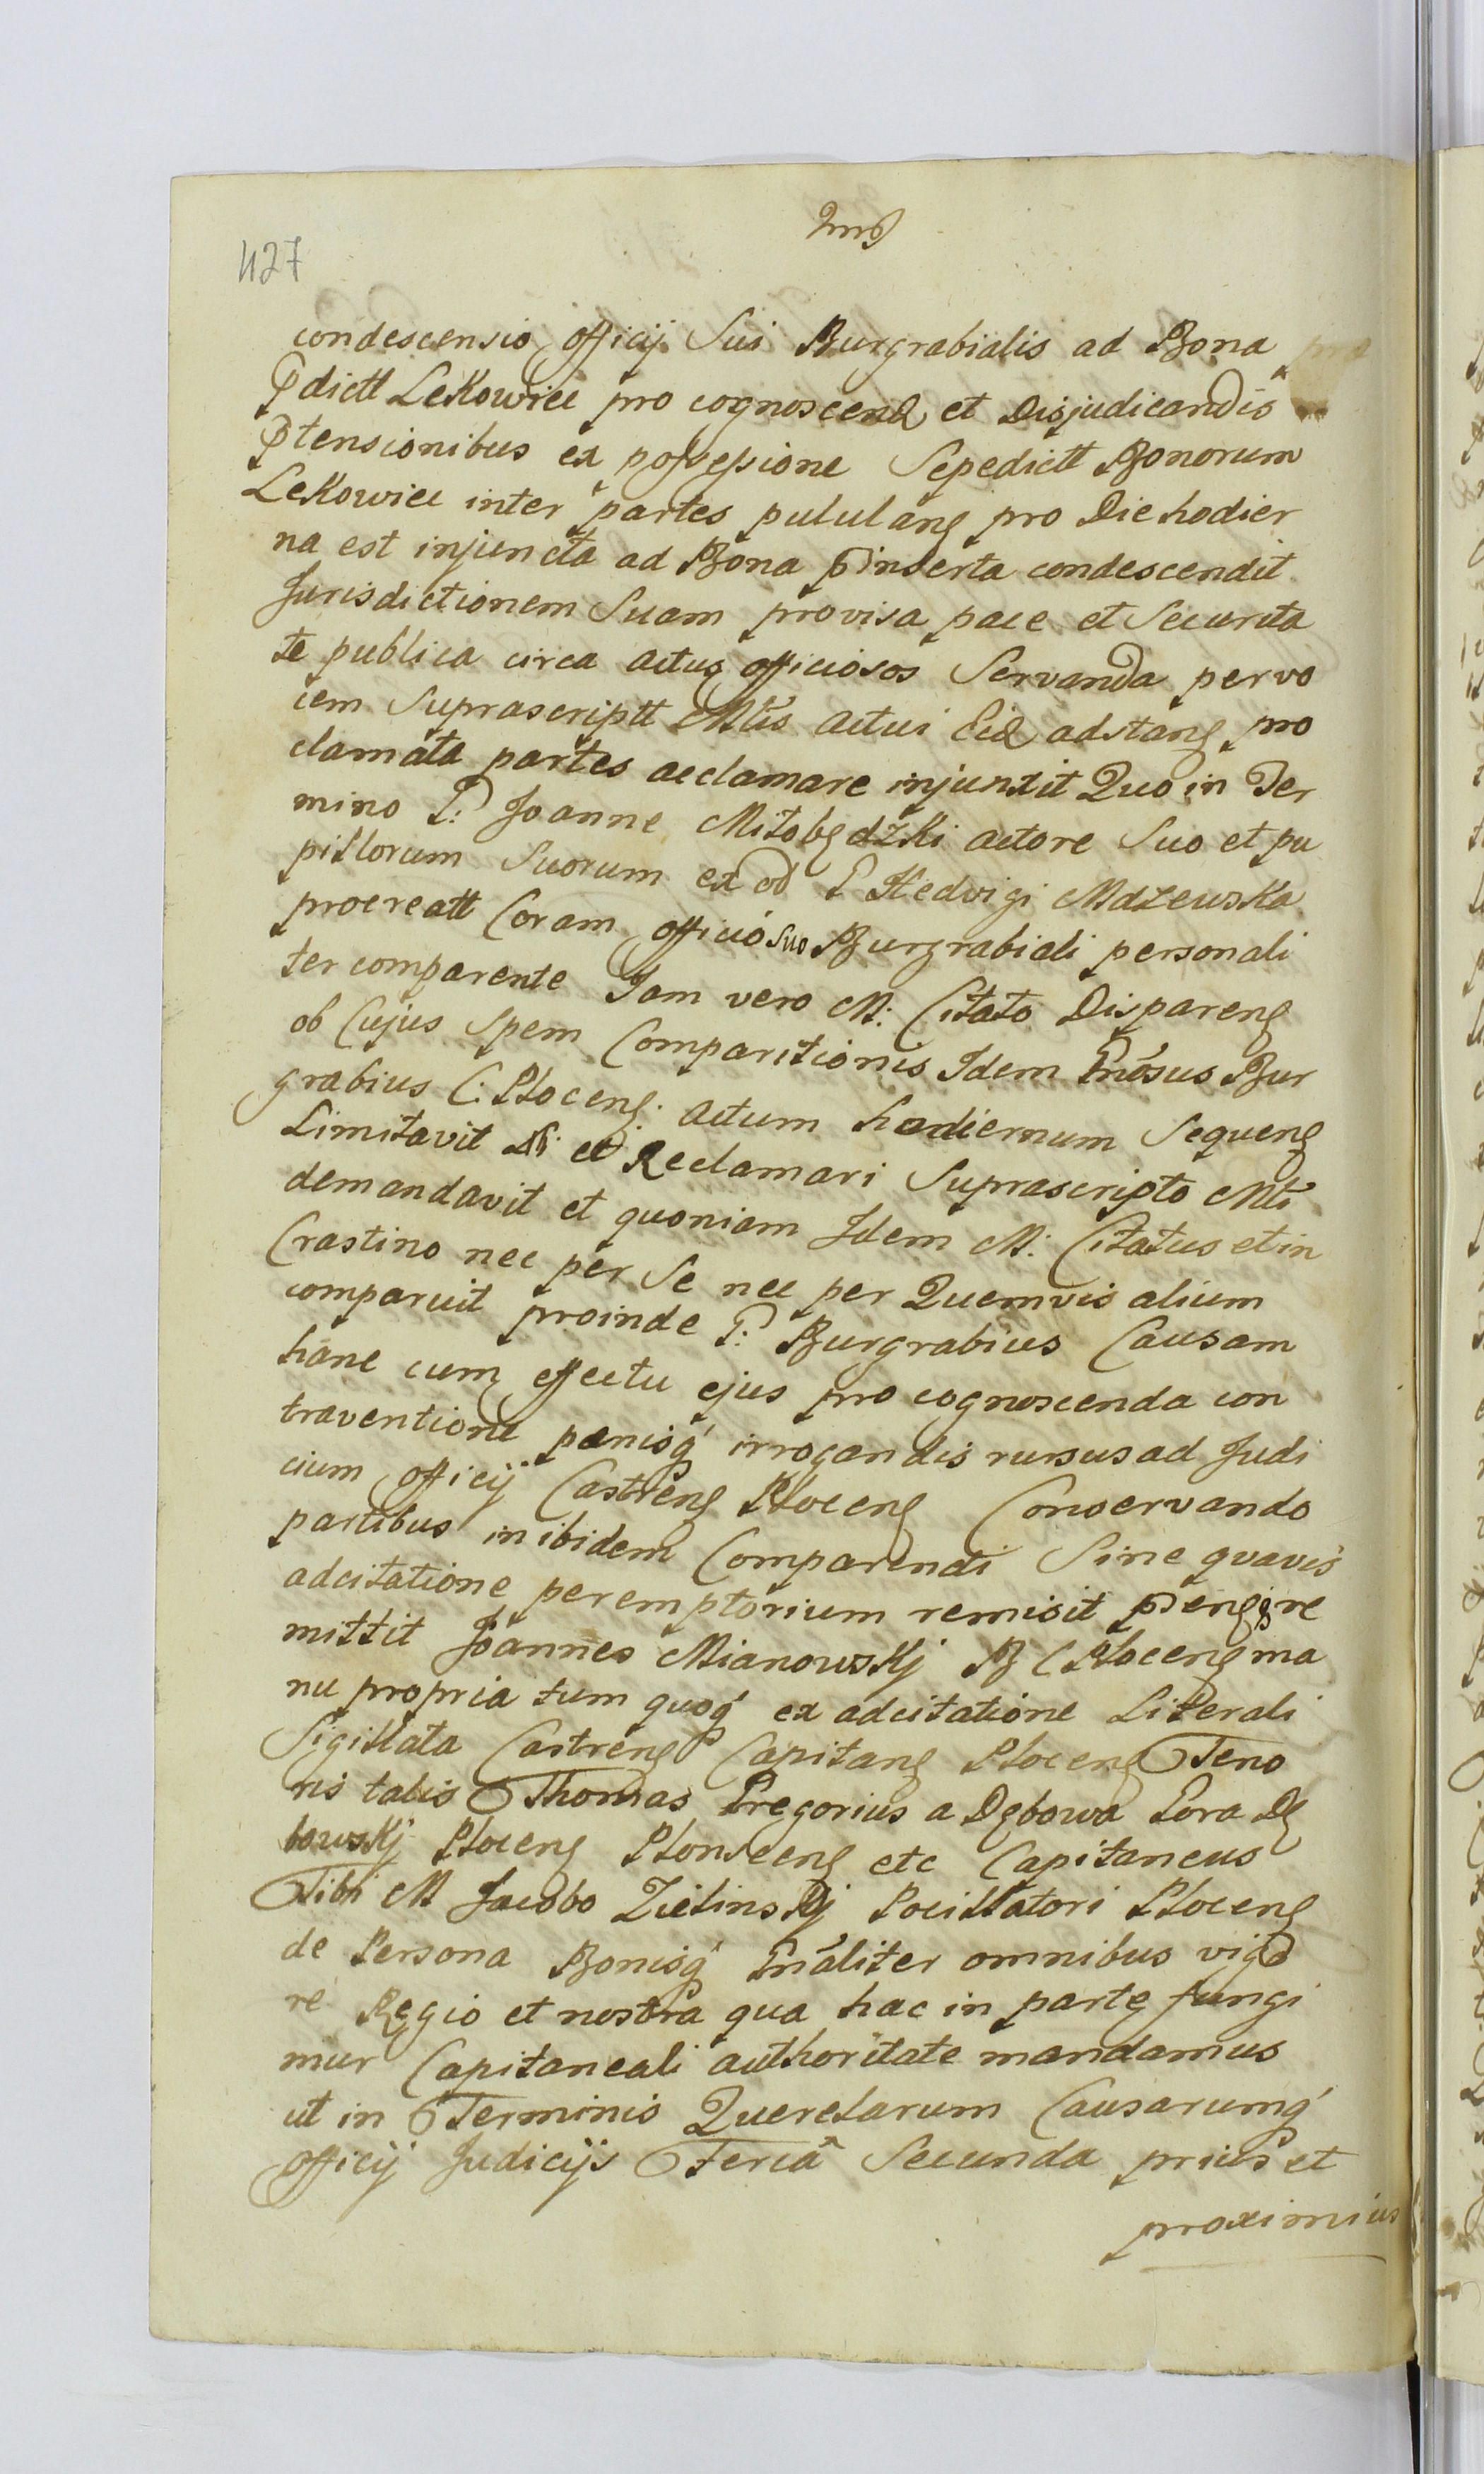 427
condescensio officij Sui Burgrabialis ad Bona
Pdictt Lekowiec pro cognoscend et Disjudicandis
Ptensionibus ex possessione Sepedictt Bonorum
Lekowiec inter partes pululang pro Die hodier
na est injuncta ad Bona pinserta condescendit
Jurisdictionem Suam provisa pace et Securita
te publica circa actus officiosos Servanda per vo
cem Suprascriptt Mlis actui Eid adstang pro
clamata partes acclamare injunxit Quo in Ter
mino P: Joanne Mitobędzki actore Suo et pu
pillorum Suorum ex od P Hedvigi Mdzewska
procreatt Coram officio suo Burgrabiali personali
ter comparente Jam vero M: Citato Dispareng
ob Cujus Spem Comparitionis Idem Gnosus Bur
grabius C: Ploceng: actum hodiernum Sequeng
Limitavit et Reclamari Suprascripto Mli
demandavit et quoniam Idem M: Citatus et in
Crastino nec per Se nec per Quemvis alium
comparuit proinde P: Burgrabius Causam
hanc cum effectu ejus pro cognoscenda con
traventione pænisq́ irrogandis rursus ad Judi
cium officij Castreng Ploceng Conservando
partibus inibidem Comparendi Sine quavis
adcitatione peremptorium remisit re
mittit Joannes Mianowskj B C Ploceng ma
nu propria tum quoq́ ex adcitatione Literali
Sigillata Castreng Capitang Ploceng Teno
ris talis Thomas Gregorius a Dębowa Gora Dę
bowskj Ploceng Plonsceng etc Capitaneus
Tibi M Jacobo Zielinskj Pocillatori Ploceng
de Persona Bonisq́ Gnáliter omnibus vigo
re Regio et nostra qua hac in parte fungi
mur Capitaneali authoritate mandamus
ut in Terminis Querelarum Causarumq́
officij Judicijs Feriâ Secunda prius et
proximius